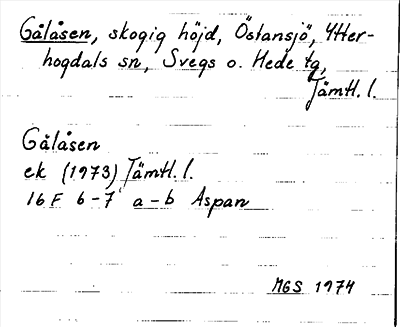 Gålåsen, skogig höjd, Östansjö, Ytter-
hogdals sn, Svegs o. Hede tg,
Jämtl. l.
Gålåsen
ek (1973) Jämtl. l.
16 F 6-7 a-b Aspan
MGS 1974